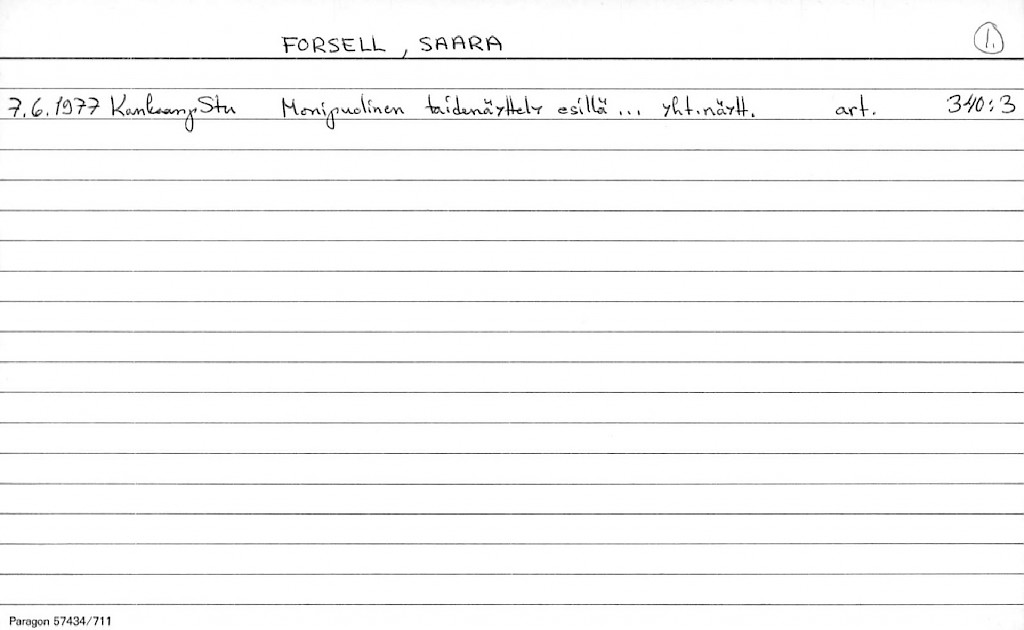 FORSELL, SAARA 1.
7.6.1977 Kankaanp Stu Monipuolinen taidenäyttely esillä... yht.näytt. art. 340:3
Paragon 57434/711